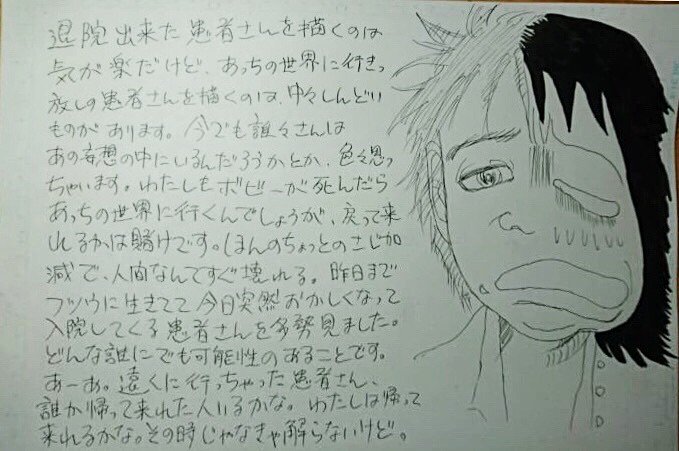 退院出来た患者さんを描くのは
気が楽だけど、あっちの世界に行きっ
放しの患者さんを描くのは、中々しんどい
ものがあります。今でも誰々さんは
あの妄想の中にいるんだろうかとか、色々思っ
ちゃいます。わたしもボビーが死んだら
あっちの世界に行くんでしょうが、戻って来
れるかは賭けです。ほんのちょっとのさじ加
減で、人間なんてすぐ壊れる。昨日まで
フツウに生きてて今日突然おかしくなって
入院してくる患者さんを多勢見ました。
どんな誰にでも可能性のあることです。
あーあ。遠くに行っちゃった患者さん、
誰か帰って来れた人いるかな。わたしは帰って
来れるかな。その時じゃなきゃ解らないけど。